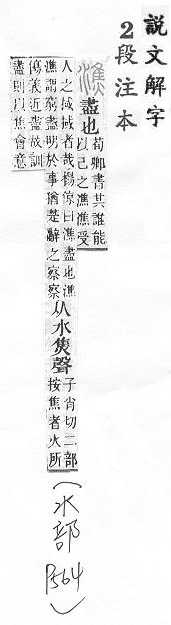 說文解字
2段注本
潐盡也
荀卿書其誰能
以己之潐潐受
人之域域者哉楊倞曰潐盡也潐
潐謂窮盡明於事猶楚辭之察察
从水焦聲
子肖切二部
按焦者火所
傷義近盡故訓
盡則以焦會意
(水部P564)